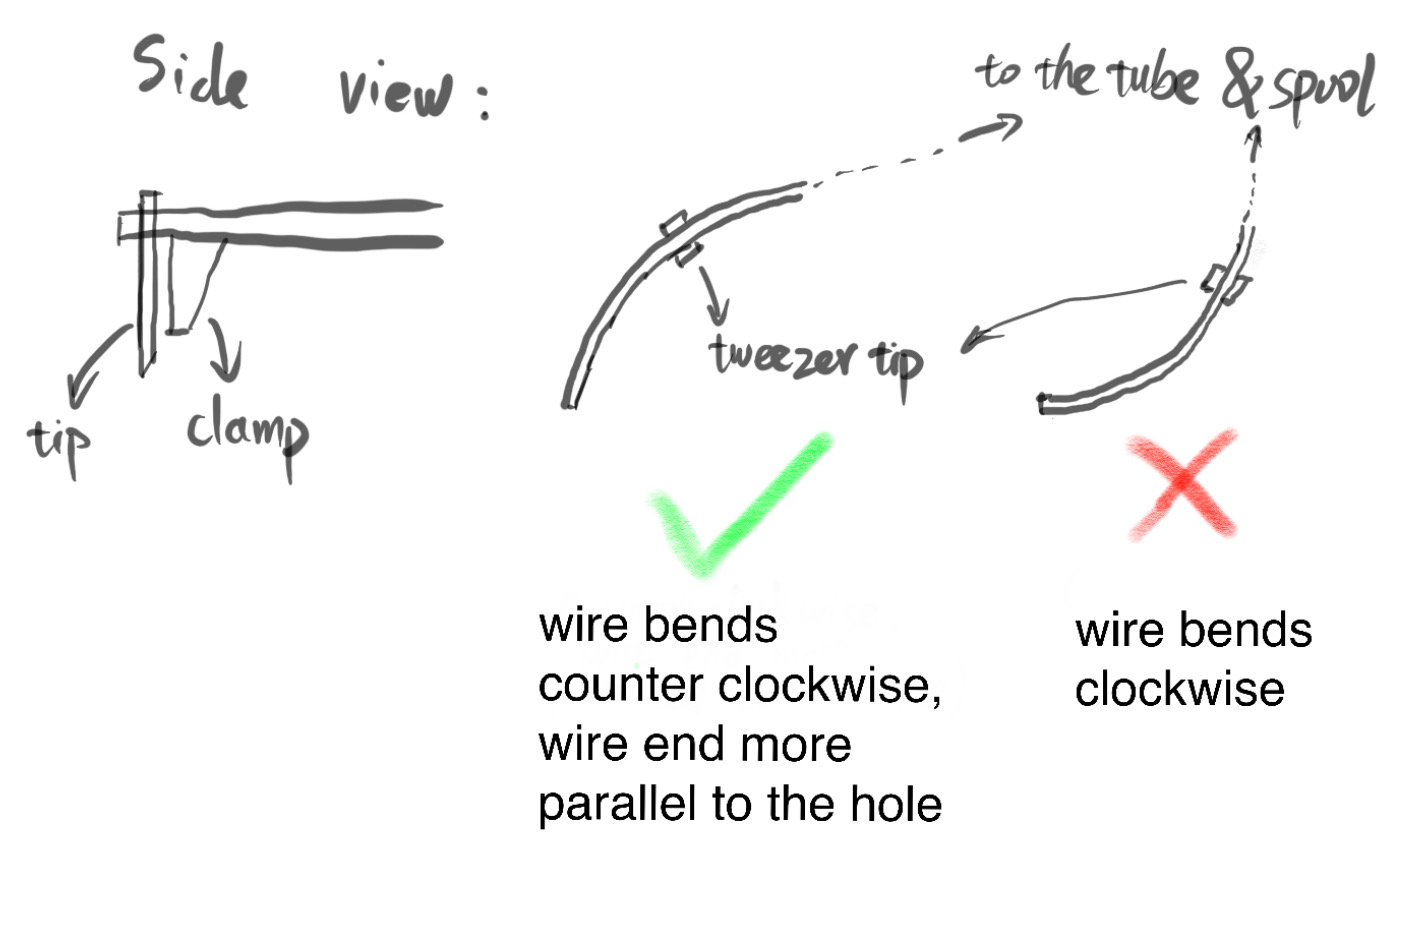 Side view:
to the tube & spool
tweezer tip
tip
clamp
wire bends
counter clockwise,
wire end more
parallel to the hole
wire bends
clockwise